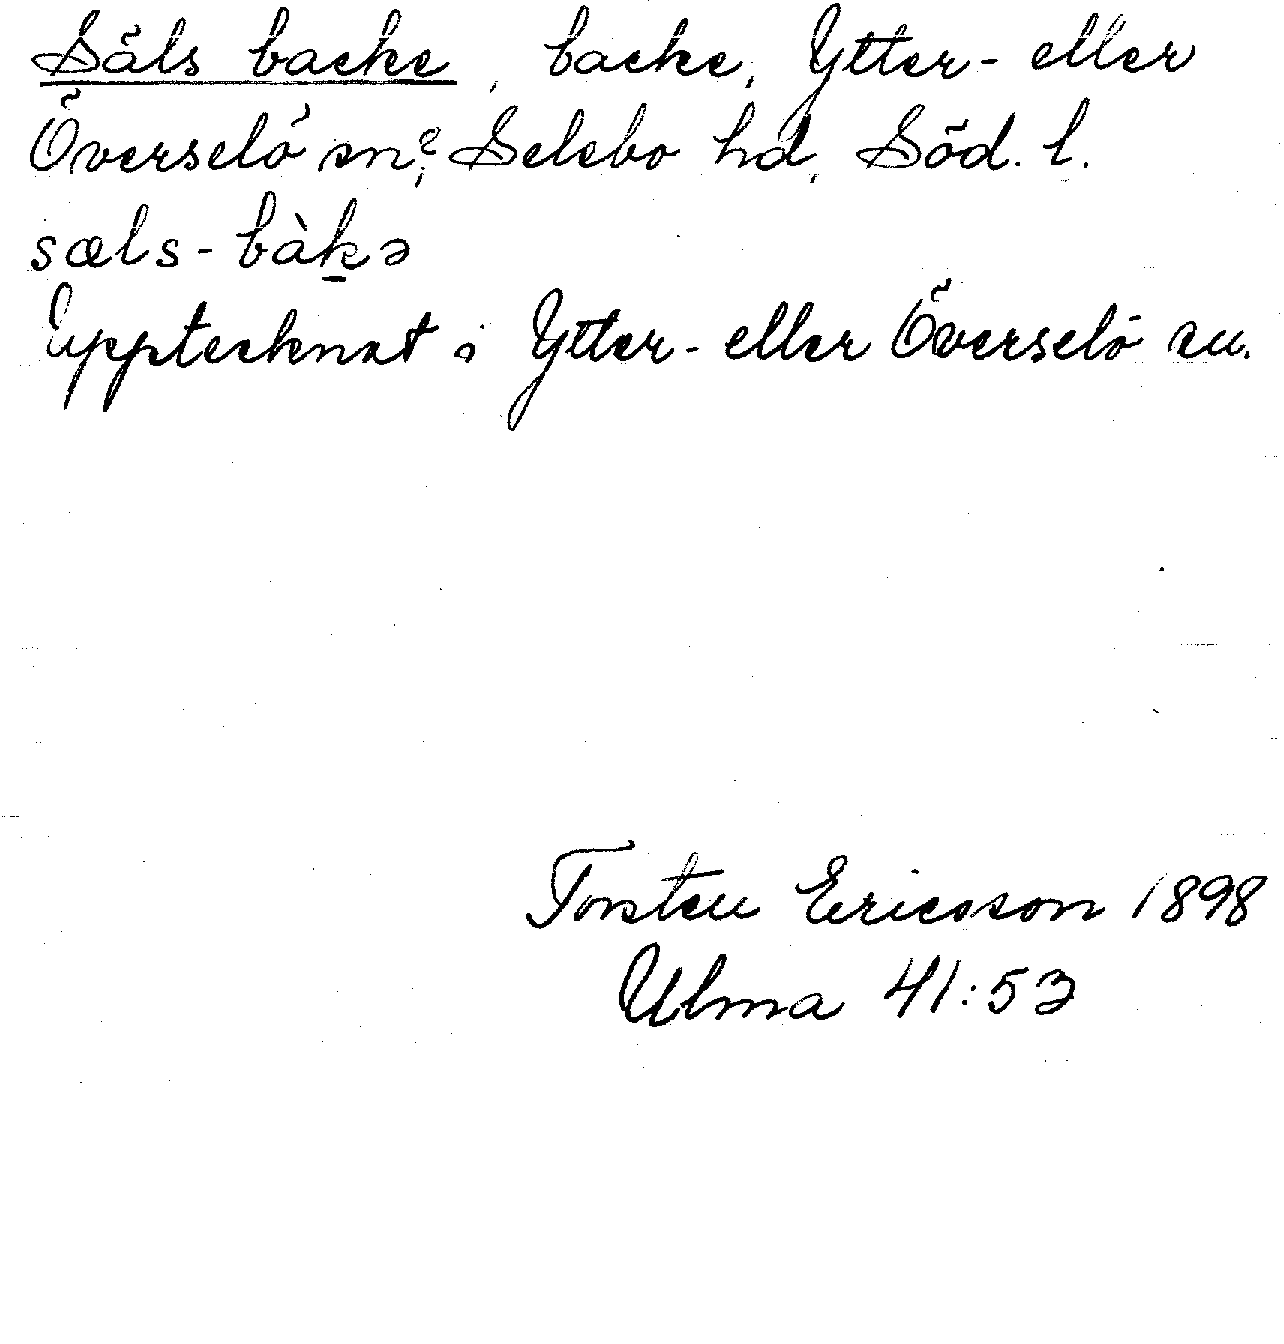 Säls backe, backe, Ytter- eller
Överselö sn?, Selebo hd, Söd. l.
sæls-bàkə
Upptecknat i Ytter- eller Överselö sn.
Torsten Ericsson 1898
Ulma 41:53